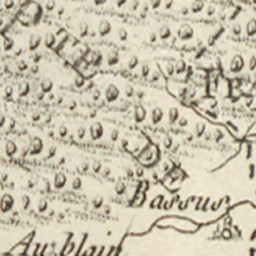 OTE
FE
DE
Bassus
Au blain